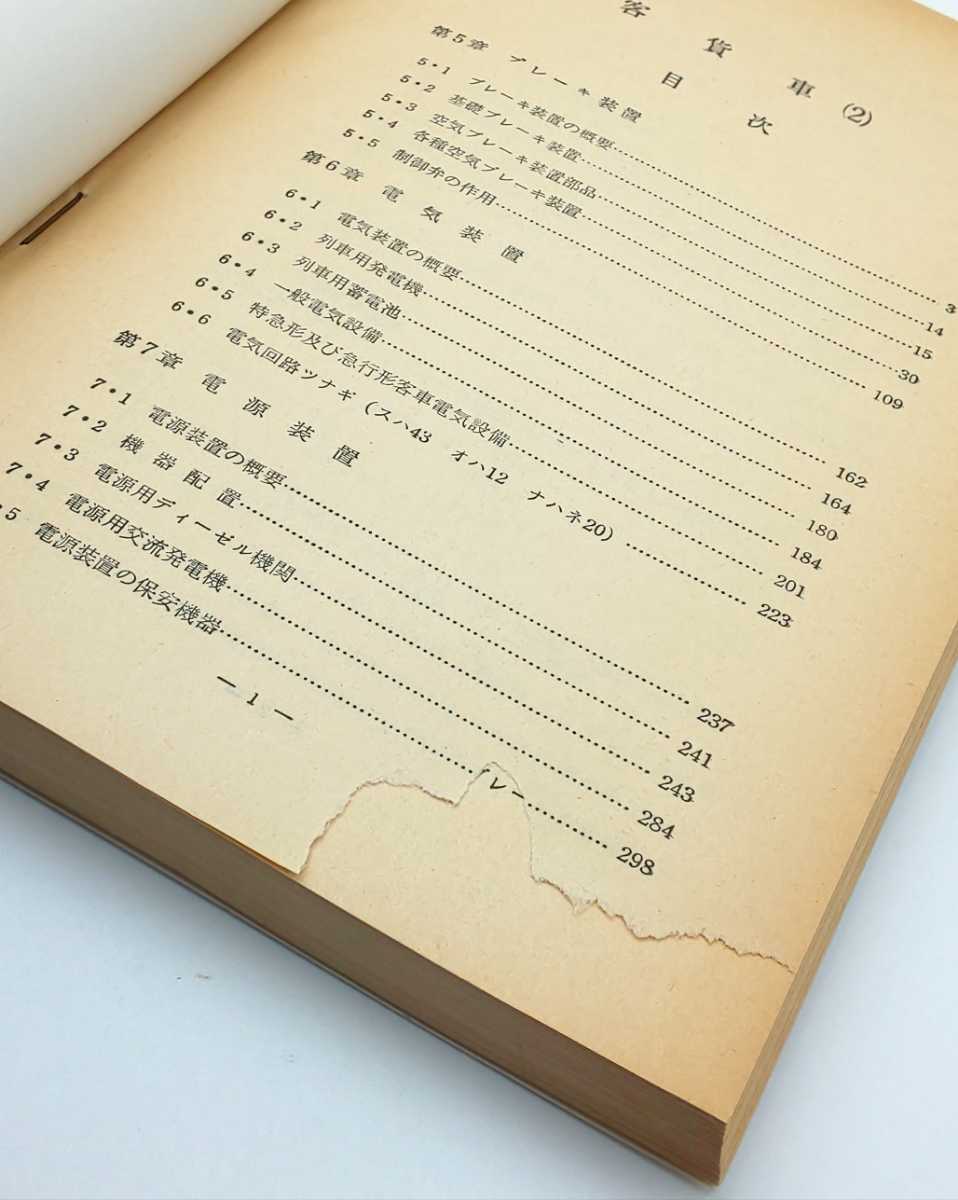 客貨車(2)
目次
第5章 ブレーキ装置
5・1 ブレーキ装置の概要……3
5・2 基礎ブレーキ装置……14
5・3 空気ブレーキ装置部品……15
5・4 各種空気ブレーキ装置……30
5・5 制御弁の作用……109
第6章 電気装置
6・1 電気装置の概要……162
6・2 列車用発電機……164
6・3 列車用蓄電池……180
6・4 一般電気設備……184
6・5 特急形及び急行形客車電気設備……201
6・6 電気回路ツナギ(スハ43 オハ12 ナハネ20)……223
第7章 電源装置
7・1 電源装置の概要……237
7・2 機器配置……241
7・3 電源用ディーゼル機関……243
7・4 電源用交流発電機……284
・5 電源装置の保安機器……298
― 1 ―
レー